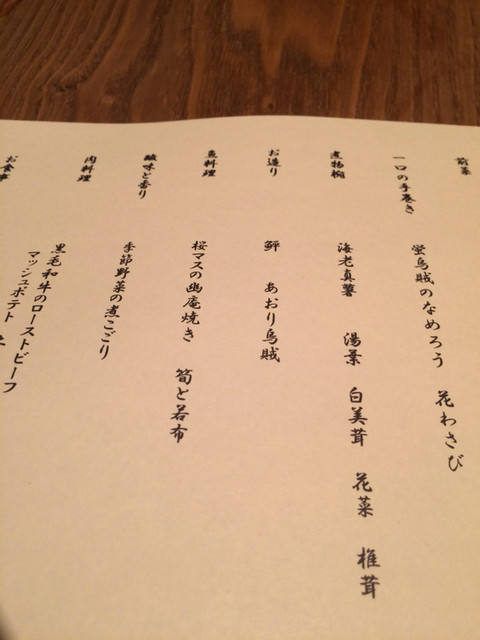 前菜
一口の手巻き
蛍烏賊のなめろう 花わさび
煮物椀
海老真薯 湯葉 白美茸 花菜 椎茸
お造り
鮃 あおり烏賊
魚料理
桜マスの幽庵焼き 筍と若布
酸味と香り
季節野菜の煮こごり
肉料理
黒毛和牛のローストビーフ
マッシュポテト
お食事